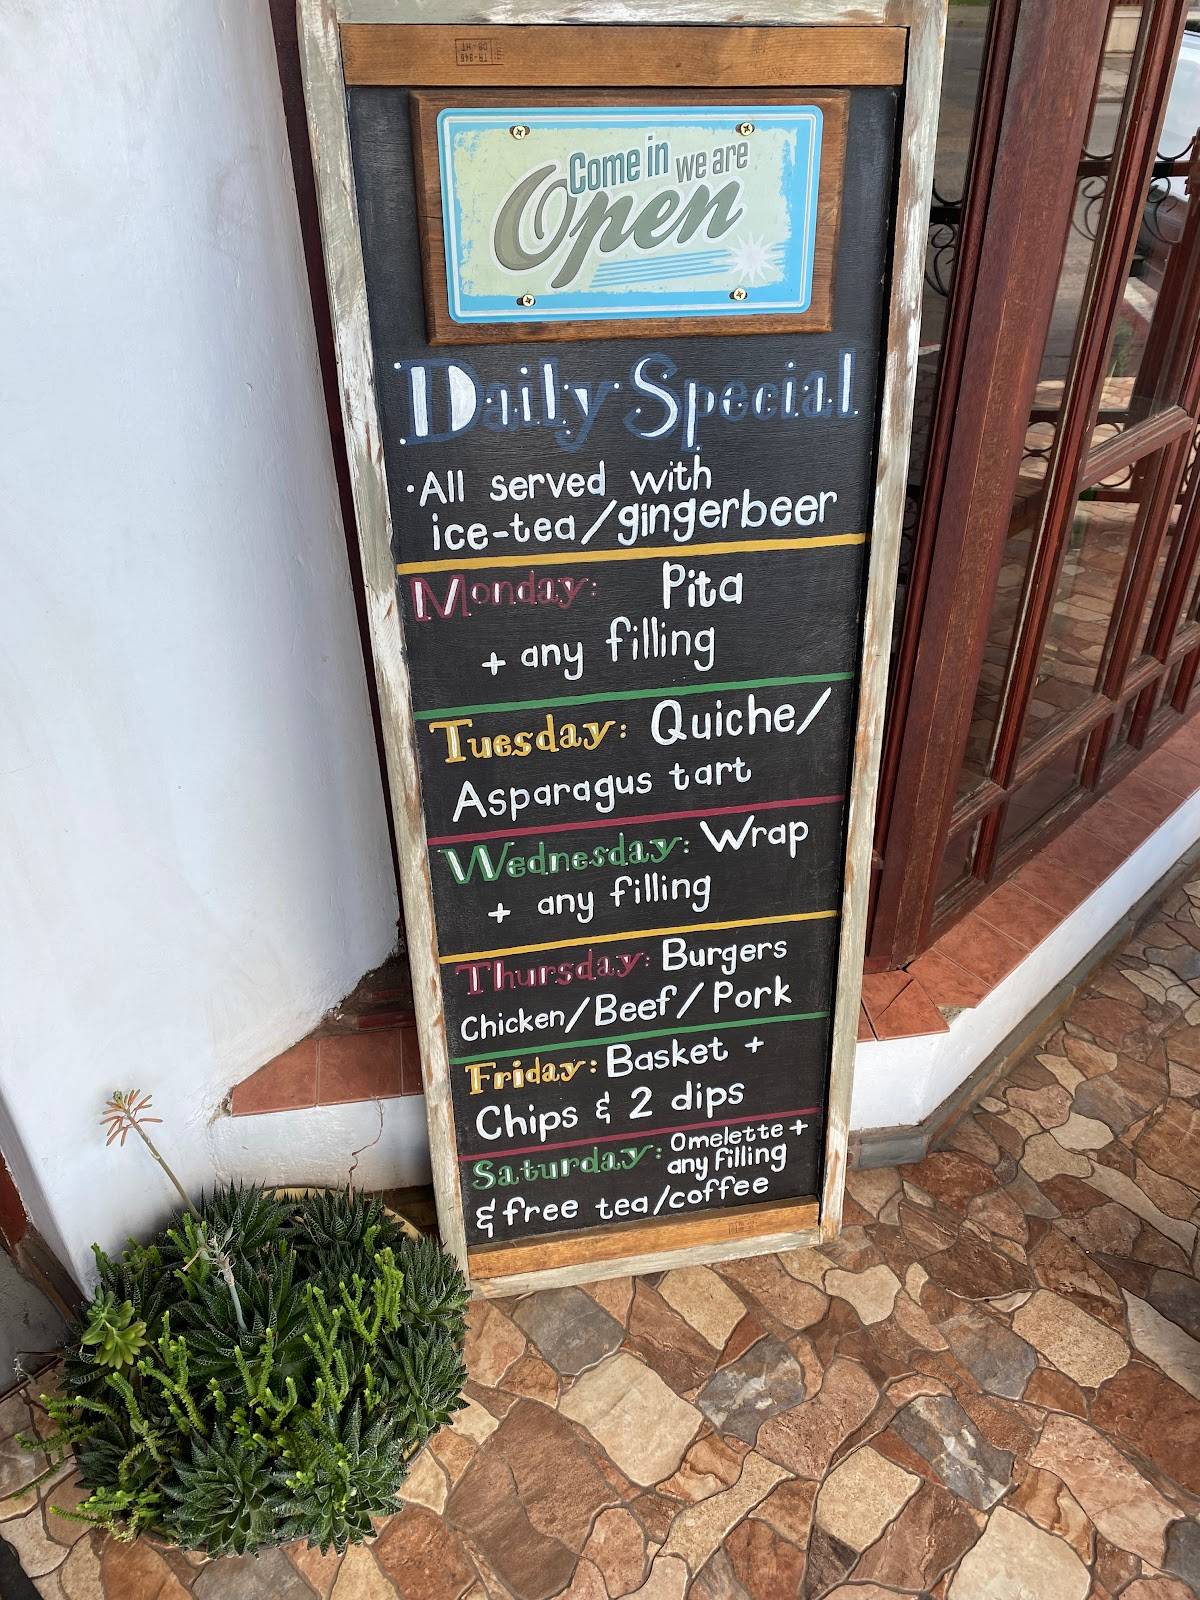 Come in we are
Open
Daily Special
·All served with
ice-tea/gingerbeer
Monday: Pita
+ any filling
Tuesday: Quiche/
Asparagus tart
Wednesday: Wrap
+ any filling
Thursday: Burgers
Chicken/Beef/Pork
Friday: Basket +
Chips & 2 dips
Saturday: Omelette +
any filling
& free tea/coffee